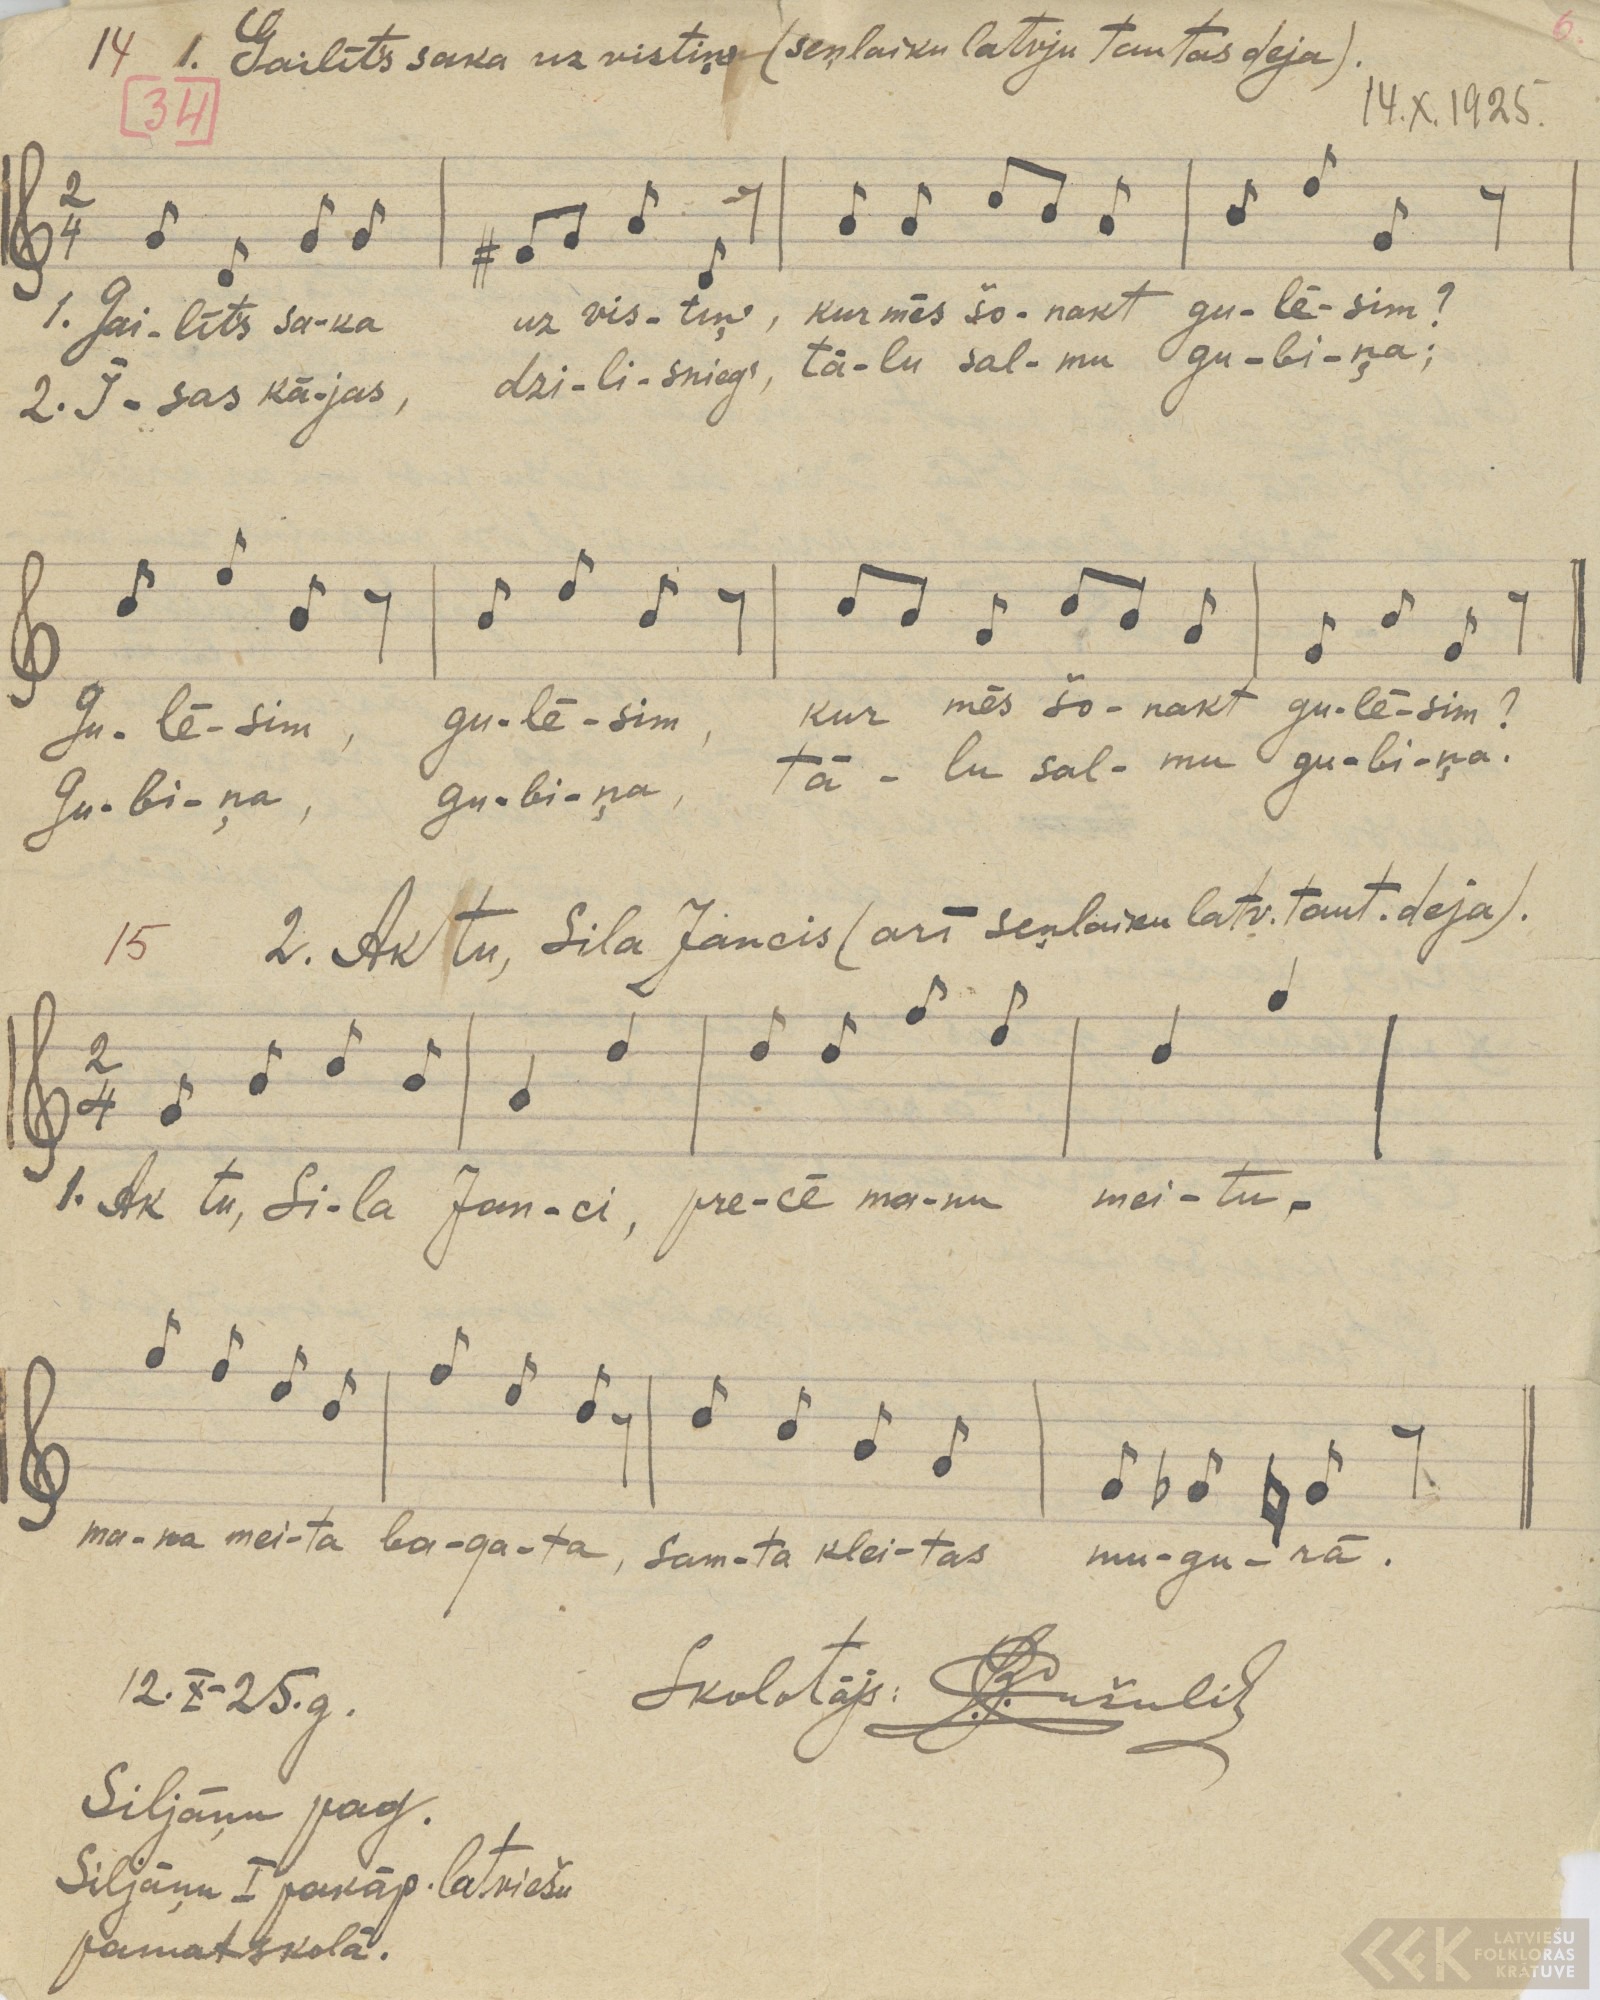 6.
14 1. Gailīts saka uz vistiņ' (seņlaiku latvju tautas deja).
[34]
14.X.1925.
2
4
1. Gai-līts sa-ka uz vis-tiņ', kur mēs šo-nakt gu-lē-sim?
2. Ī-sas kā-jas, dzi-li-snieg's, tā-lu sal-mu gu-bi-ņa;
Gu-lē-sim, gu-lē-sim, kur mēs šo-nakt gu-lē-sim?
Gu-bi-ņa, gu-bi-ņa, tā-lu sal-mu gu-bi-ņa.
15 2. Ak tu, Sila Jancis (arī seņlaiku latv. taut. deja).
2
4
1. Ak tu, Si-la Jan-ci, pre-cē ma-nu mei-tu,-
ma-na mei-ta ba-ga-ta, sam-ta klei-tas mu-gu-rā.
12.X-25.g. Skolotājs:
Siljāņu pag.
Siljāņu I pakāp. latviešu
pamatskolā.
LATVIEŠU
FOLKLORAS
KRĀTUVE